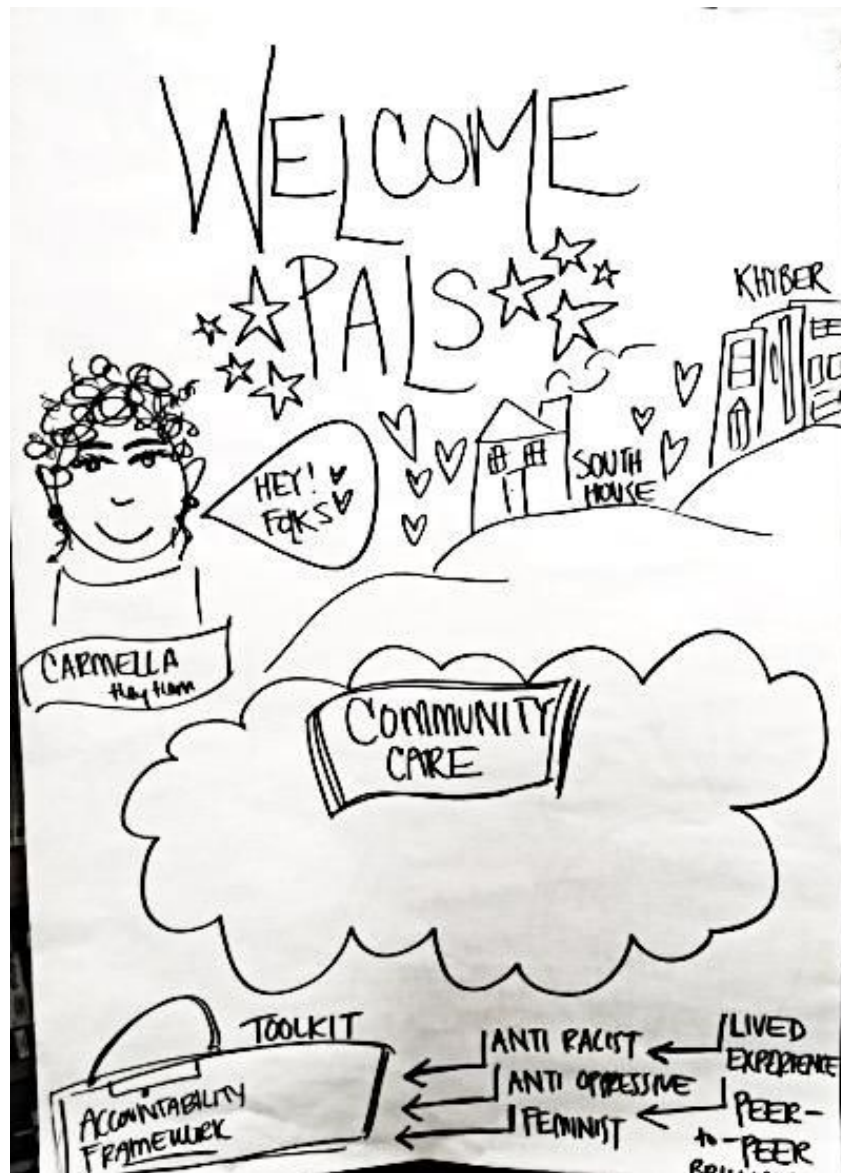 WELCOME
PALS
KHYBER
HEY!
FOLKS
SOUTH
HOUSE
CARMELLA
they them
COMMUNITY
CARE
TOOLKIT
ACCOUNTABILITY
FRAMEWORK
ANTI RACIST
ANTI OPPRESSIVE
FEMINIST
LIVED
EXPERIENCE
PEER-
to-PEER